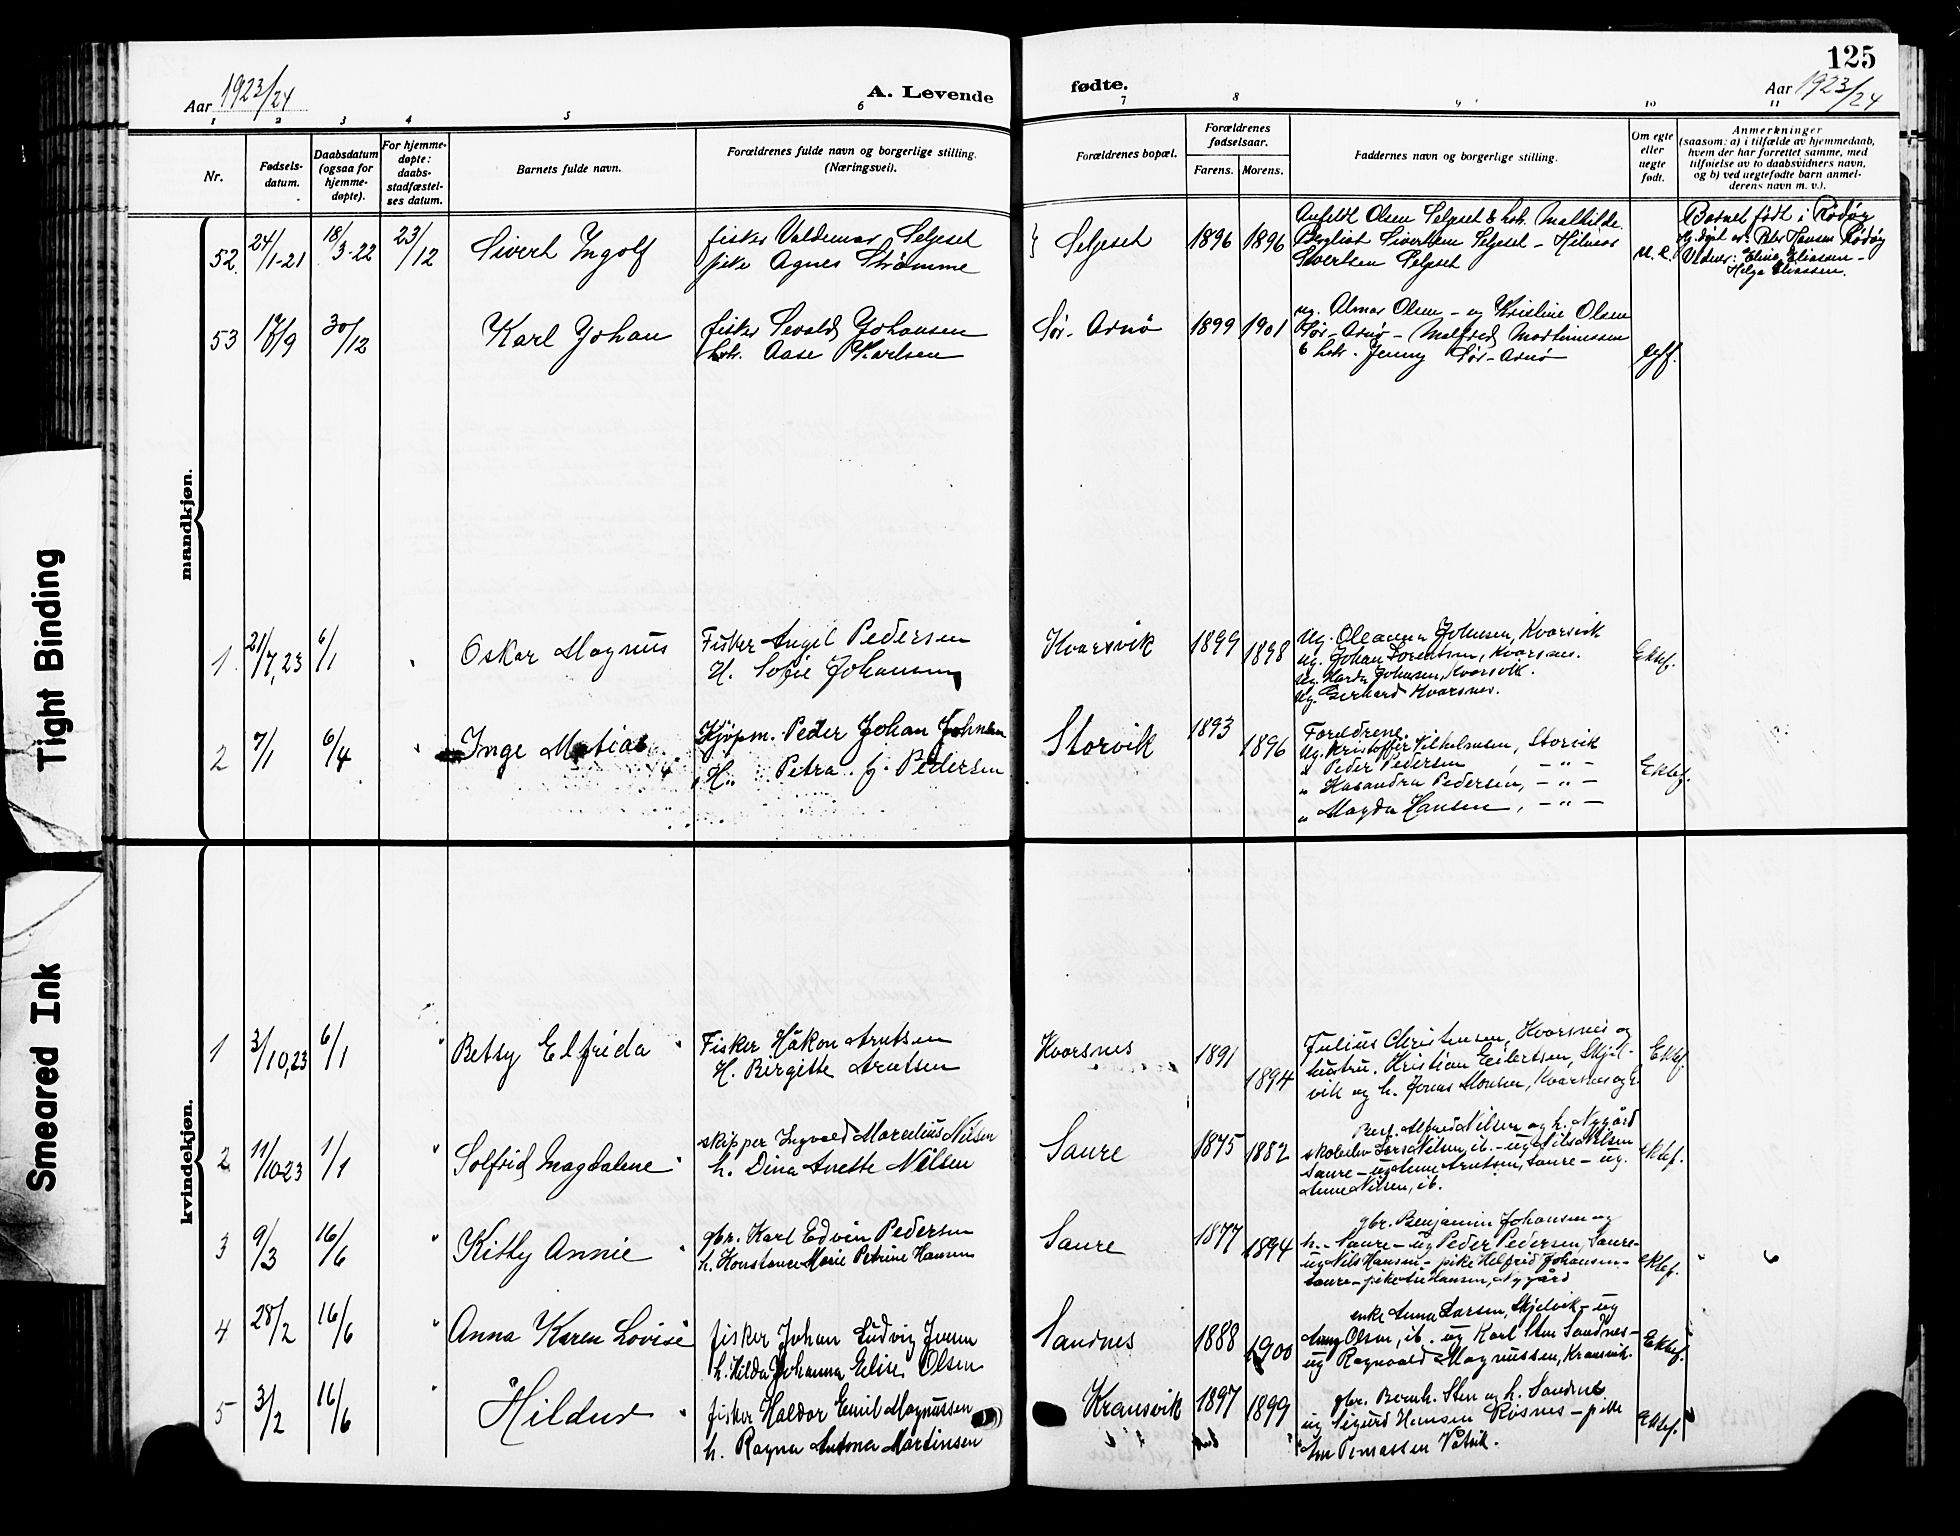 125
Aar 1923/24
A. Levende
fødte.
Aar 1923/24
1 2 3 4 5 6 7 8 9 10 11
Nr.
Fødsels-
datum.
Daabsdatum
(ogsaa for
hjemme-
døpte).
For hjemme-
døpte:
daabs-
stadfæstel-
ses datum.
Barnets fulde navn.
Forældrenes fulde navn og borgerlige stilling.
(Næringsvei).
Forældrenes bopæl.
Forældrenes
fødselsaar.
Farens. Morens.
Faddernes navn og borgerlige stilling.
Om egte
eller
uegte
født.
Anmerkninger
(saasom: a) i tilfælde av hjemmedaab,
hvem der har forrettet samme, med
tilføielse av to daabsvidners navn,
og b) ved uegtefødte barn anmel-
derens navn m. v.).
mandkjøn.
52 24/1-21 18/3-22 23/12 Sivert Ingolf
fisker Valdemar Seljeset
pike Agnes Strømme
Seljeset 1896 1896
Anfeldt Olsen Seljeset & hst. Mathilde
Bergliot Sivertsen Seljeset - Hilmar
Sivertsen Seljeset
u. e.
Barnet født i Rødøy
Hj. døpt av: Peter Hansen Rødøy
Vidner: Eline Eliassen -
Helga Eliassen.
53 30/12 Karl Johan
fisker Sevald Johansen
hst. Aase Karlsen
Sør-Arnø 1899 1901
ug. Almar Olsen - ug Kristine Olsen
Sør-Arnø - Malfred Martinussen
& hst. Jenny Sør-Arnø
egf.
1 21/7,23 6/1 Oskar Magnus
Fisker Angel Pedersen
H. Sofie Johansen
Kvarsvik 1899 1898
Ug. Oleanna Johnsen, Kvarsvik
ug. Johan Lorentsen, Kvarsnes.
Ug. Harda Johnsen, Kvarsvik.
Ug. Gerhard Kvarsnes.
Ektef.
2 7/1 6/4 Inge Matias
Kjøpm. Peder Johan Johnsen
H. Petra. f. Pedersen
Storvik 1893 1896
Foreldrene.
Ug. Kristoffer Vilhelmsen, Storvik
" Peder Pedersen, - " -
" Kasandra Pedersen, - " -
" Magda Hansen, - " -
Ektef.
kvindekjøn.
1 3/10,23 6/1 Betsy Elfrida
Fisker Håkon Arntsen
H. Bergitte Arntsen
Kvarsnes 1891 1894
Julius Christensen, Kvarsnes og
hustru. Kristian Eilertsen, Skjel-
vik og h. Jonas Monsen, Kvarsnes og h.
Ektef.
2 11/10-23 1/1 Solfrid Magdalene
skipper Ingvald Marcelius Nilsen
h. Dina Anette Nilsen
Saure 1875 1882
Alfred Nilsen og h. Nygård
Nilsen, ib. - ug Nils Nilsen
Saure - ug Anne Arntsen, Saure - ug.
Anne Nilsen, ib.
ektef.
3 9/3 16/6 Kitty Annie
gbr. Karl Edvin Pedersen
h. Konstance Marie Petrine Hansen
Saure 1877 1894
gbr. Benjamin Johansen og
h. - Saure - ug Peder Pedersen, Saure -
ug Nils Hansen - pike Helfrid Johansen -
Saure - pike Hansen, Nygård
ektef.
4 28/2 16/6 Anna Karen Lovise
fisker Johan Ludvig Jensen
h. Hilda Johanna Elise Olsen
Sandnes 1888 1900
enke Anna Larsen, Skjelvik - ug
Olsen, ib. ug Karl Sten Sandnes -
ug Ragnvald Magnussen, Kransvik.
Ektef.
5 3/2 16/6 Hildur
fisker Haldor Emil Magnussen
h. Ragna Antona Martinsen
Kransvik 1897 1899
gbr. Bernh. Sten og h. Sandnes
ug Sigurd Hansen Røsnes - pike
Tomassen Våtvik.
Ektef.
Tight Binding
Smeared Ink